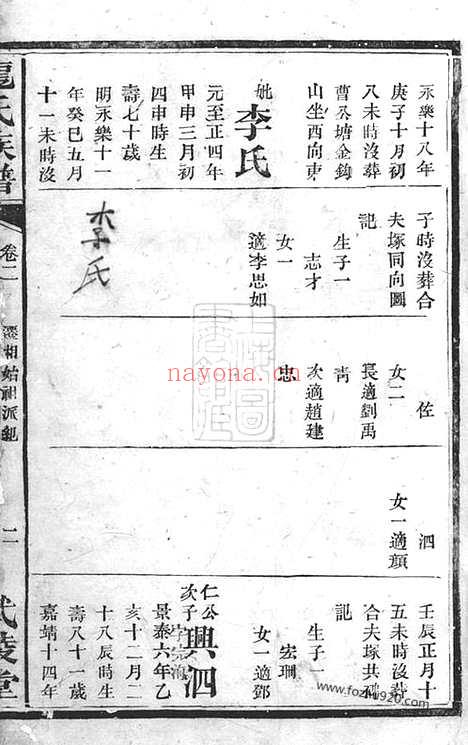 永樂十八年
庚子十月初
八未時沒葬
曹公塘金鈎
山坐西向東
妣
李氏
元至正四年
甲申三月初
四申時生
壽七十歲
明永樂十一
年癸巳五月
十一未時沒
子時沒葬合
夫塚同向圖
記
生子一
志才
女一
適李思如
李氏
佐
女二
長適劉禹
靑
次適趙建
忠
泗
女一適顏
壬辰正月十
五未時沒葬
合夫塚共碑
記
生子一
宏珊
女一適鄧
仁公
次子
興泗
景泰六年乙
亥十二月二
十八辰時生
壽八十一歲
嘉靖十四年
龍氏族譜
卷二
相始祖派紀
二
武陵堂
nayona.cn
www.fozhu920.com